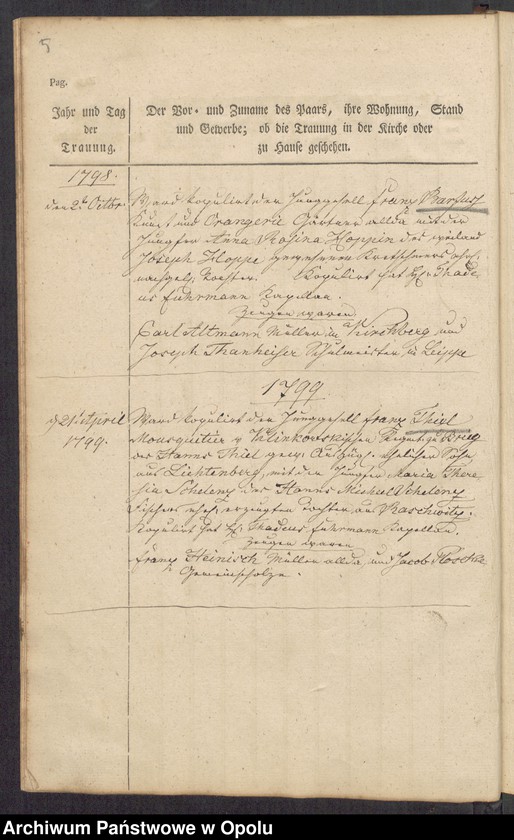 5
Pag.
Jahr und Tag
der
Trauung.
Der Vor- und Zuname des Paars, ihre Wohnung, Stand
und Gewerbe; ob die Trauung in der Kirche oder
zu Hause geschehen.
1798.
den 2t Octbr.
Ward kopuliert der Junggesell Franz Barfus
Kunst und Orangerie Gärtner allda mit der
Jungfer Anna Rosina Hoppin des weiland
Joseph Hoppe gewesenen Kretschmers
Tochter. Kopuliert hat Thade-
us Fuhrmann Kapelan.
Zeugen waren
Carl Altmann Müller in Kirschberg und
Joseph Thanheiser Schulmeister in Leippe
1799
d 21t April
1799.
Ward kopuliert der Junggesell Franz Thiel
Mousquetier Regmt Brieg
des Hanns Thiel Sohn
aus Lichtenberg, mit der Jungfer Maria There-
sia des Hanns Michael
Tochter aus Raschwitz.
Kopuliert hat Thadeus Fuhrmann Kapellan.
Zeugen waren
Franz Heinisch Müller allda, und Jacob
Gemeinscholze.
Archiwum Państwowe w Opolu